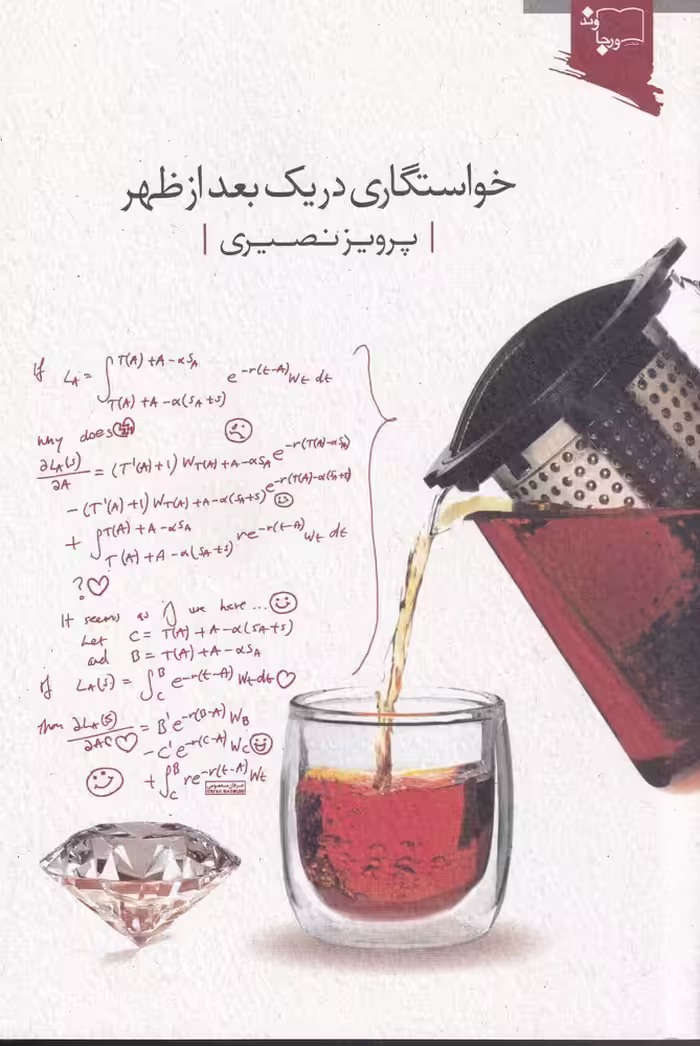 ورجاوند
خواستگاری در یک بعد از ظهر
| پرویز نصیری |
If L_A = ∫_{T(A)+A-α(S_A+S)}^{T(A)+A-αS_A} e^{-r(t-A)} W_t dt
why does
∂L_A(S)/∂A = (T'(A)+1) W_{T(A)+A-αS_A} e^{-r(T(A)-αS_A)}
- (T'(A)+1) W_{T(A)+A-α(S_A+S)} e^{-r(T(A)-α(S_A+S))}
+ ∫_{T(A)+A-α(S_A+S)}^{T(A)+A-αS_A} re^{-r(t-A)} W_t dt
?♡
It seems as if we have...
Let C = T(A)+A-α(S_A+S)
and B = T(A)+A-αS_A
if L_A(S) = ∫_C^B e^{-r(t-A)} W_t dt ♡
then ∂L_A(S)/∂A = B'e^{-r(B-A)} W_B
- C'e^{-r(C-A)} W_C
+ ∫_C^B re^{-r(t-A)} W_t